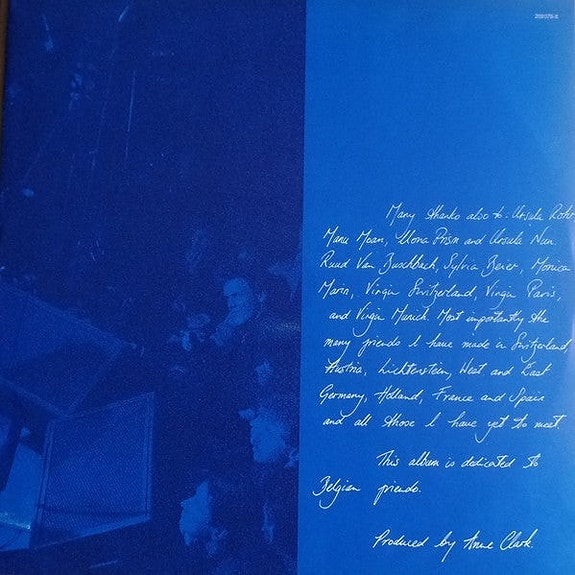 209079-8
Many thanks also to - Ursula Rohr
Manu Moan, Mona Prism and Ursula Nun
Ruud Van Buschbach, Sylvia Beier, Monica
Marin, Virgin Switzerland, Virgin Paris,
and Virgin Munich. Most importantly the
many friends I have made in Switzerland,
Austria, Lichtenstein, West and East
Germany, Holland, France and Spain
and all those I have yet to meet
This album is dedicated to
Belgian friends.
Produced by Anne Clark.